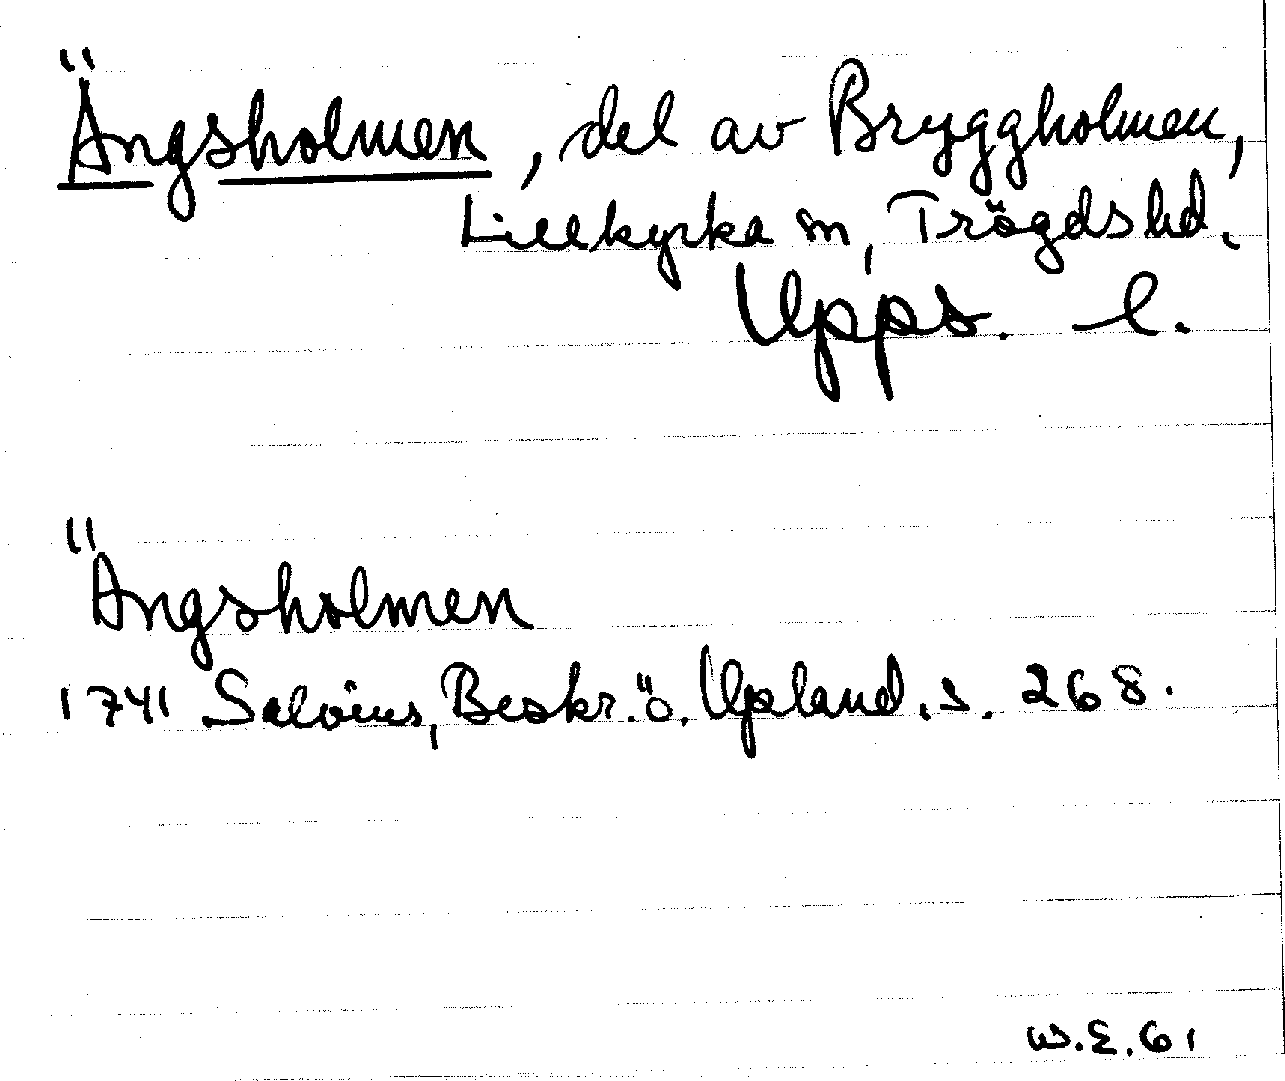 Ängsholmen, del av Bryggholmen,
Lillkyrka sn, Trögds hd.
Upps. l.
Ängsholmen
1741 Salvius, Beskr. ö. Upland. s. 268.
W.E. 61